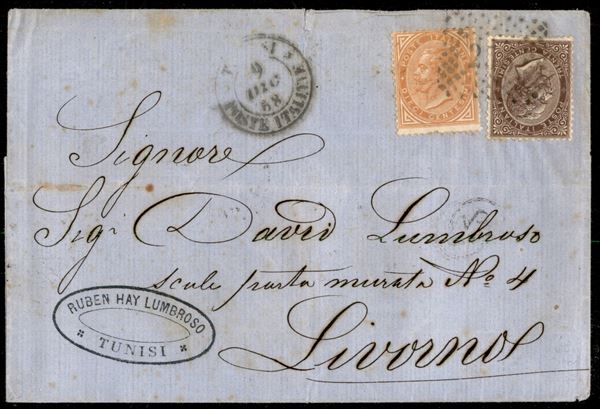 TUNISI
9
DIC
68
POSTE ITALIANE
POSTE ITALIANE
DIECI CENTESIMI
POSTE ITALIANE
Signore
Sigr David Lumbroso
scale porta murata No. 4
Livorno
RUBEN HAY LUMBROSO
TUNISI